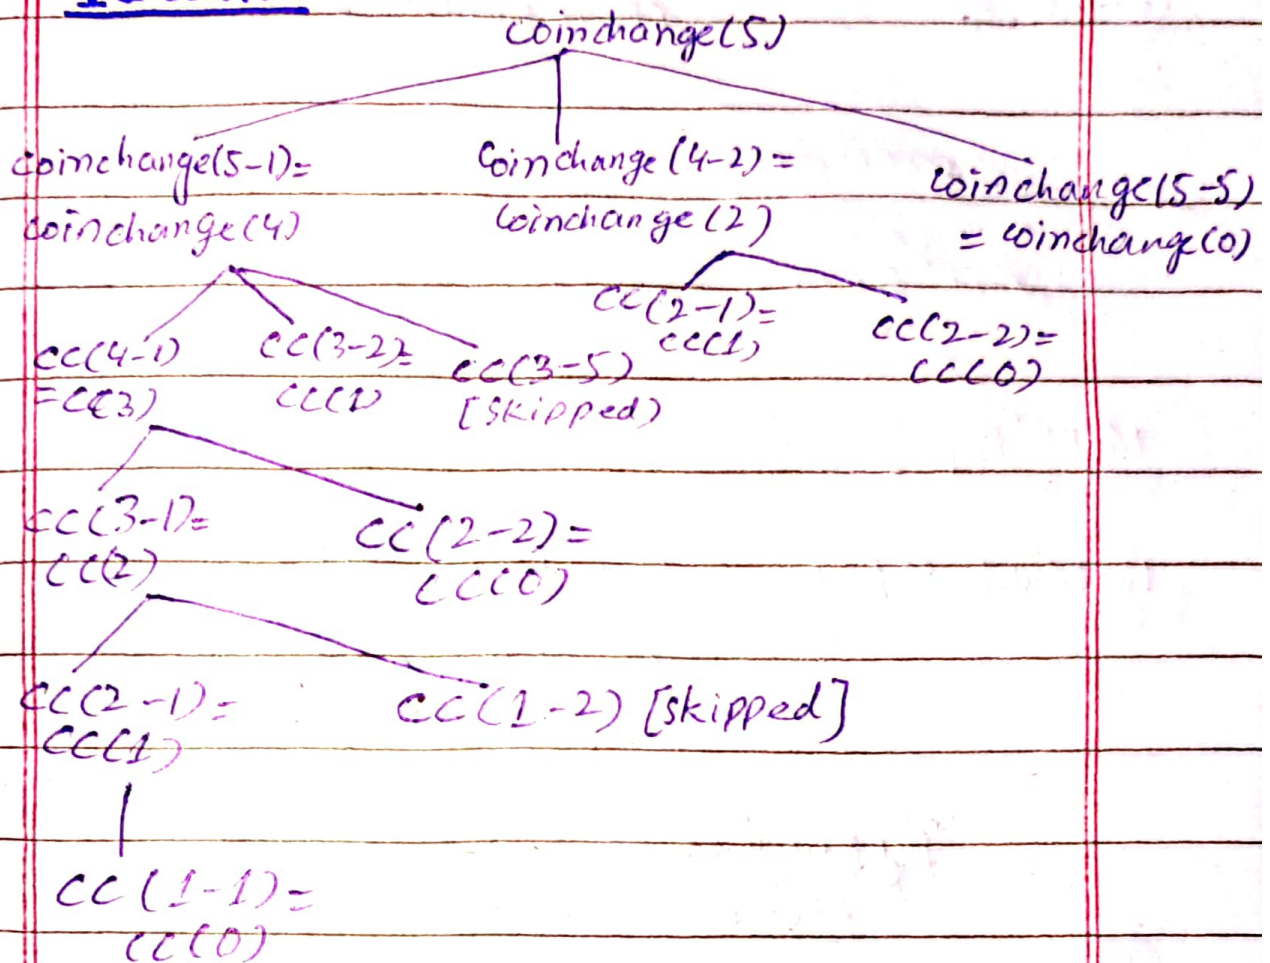 coinchange(5)
coinchange(5-1)=
coinchange(4)
coinchange(4-2)=
coinchange(2)
coinchange(5-5)
= coinchange(0)
cc(4-1)
=cc(3)
cc(3-2)=
cc(1)
cc(3-5)
[skipped)
cc(2-1)=
cc(1)
cc(2-2)=
cc(0)
cc(3-1)=
cc(2)
cc(2-2)=
cc(0)
cc(2-1)=
cc(1)
cc(1-2) [skipped]
cc(1-1)=
cc(0)